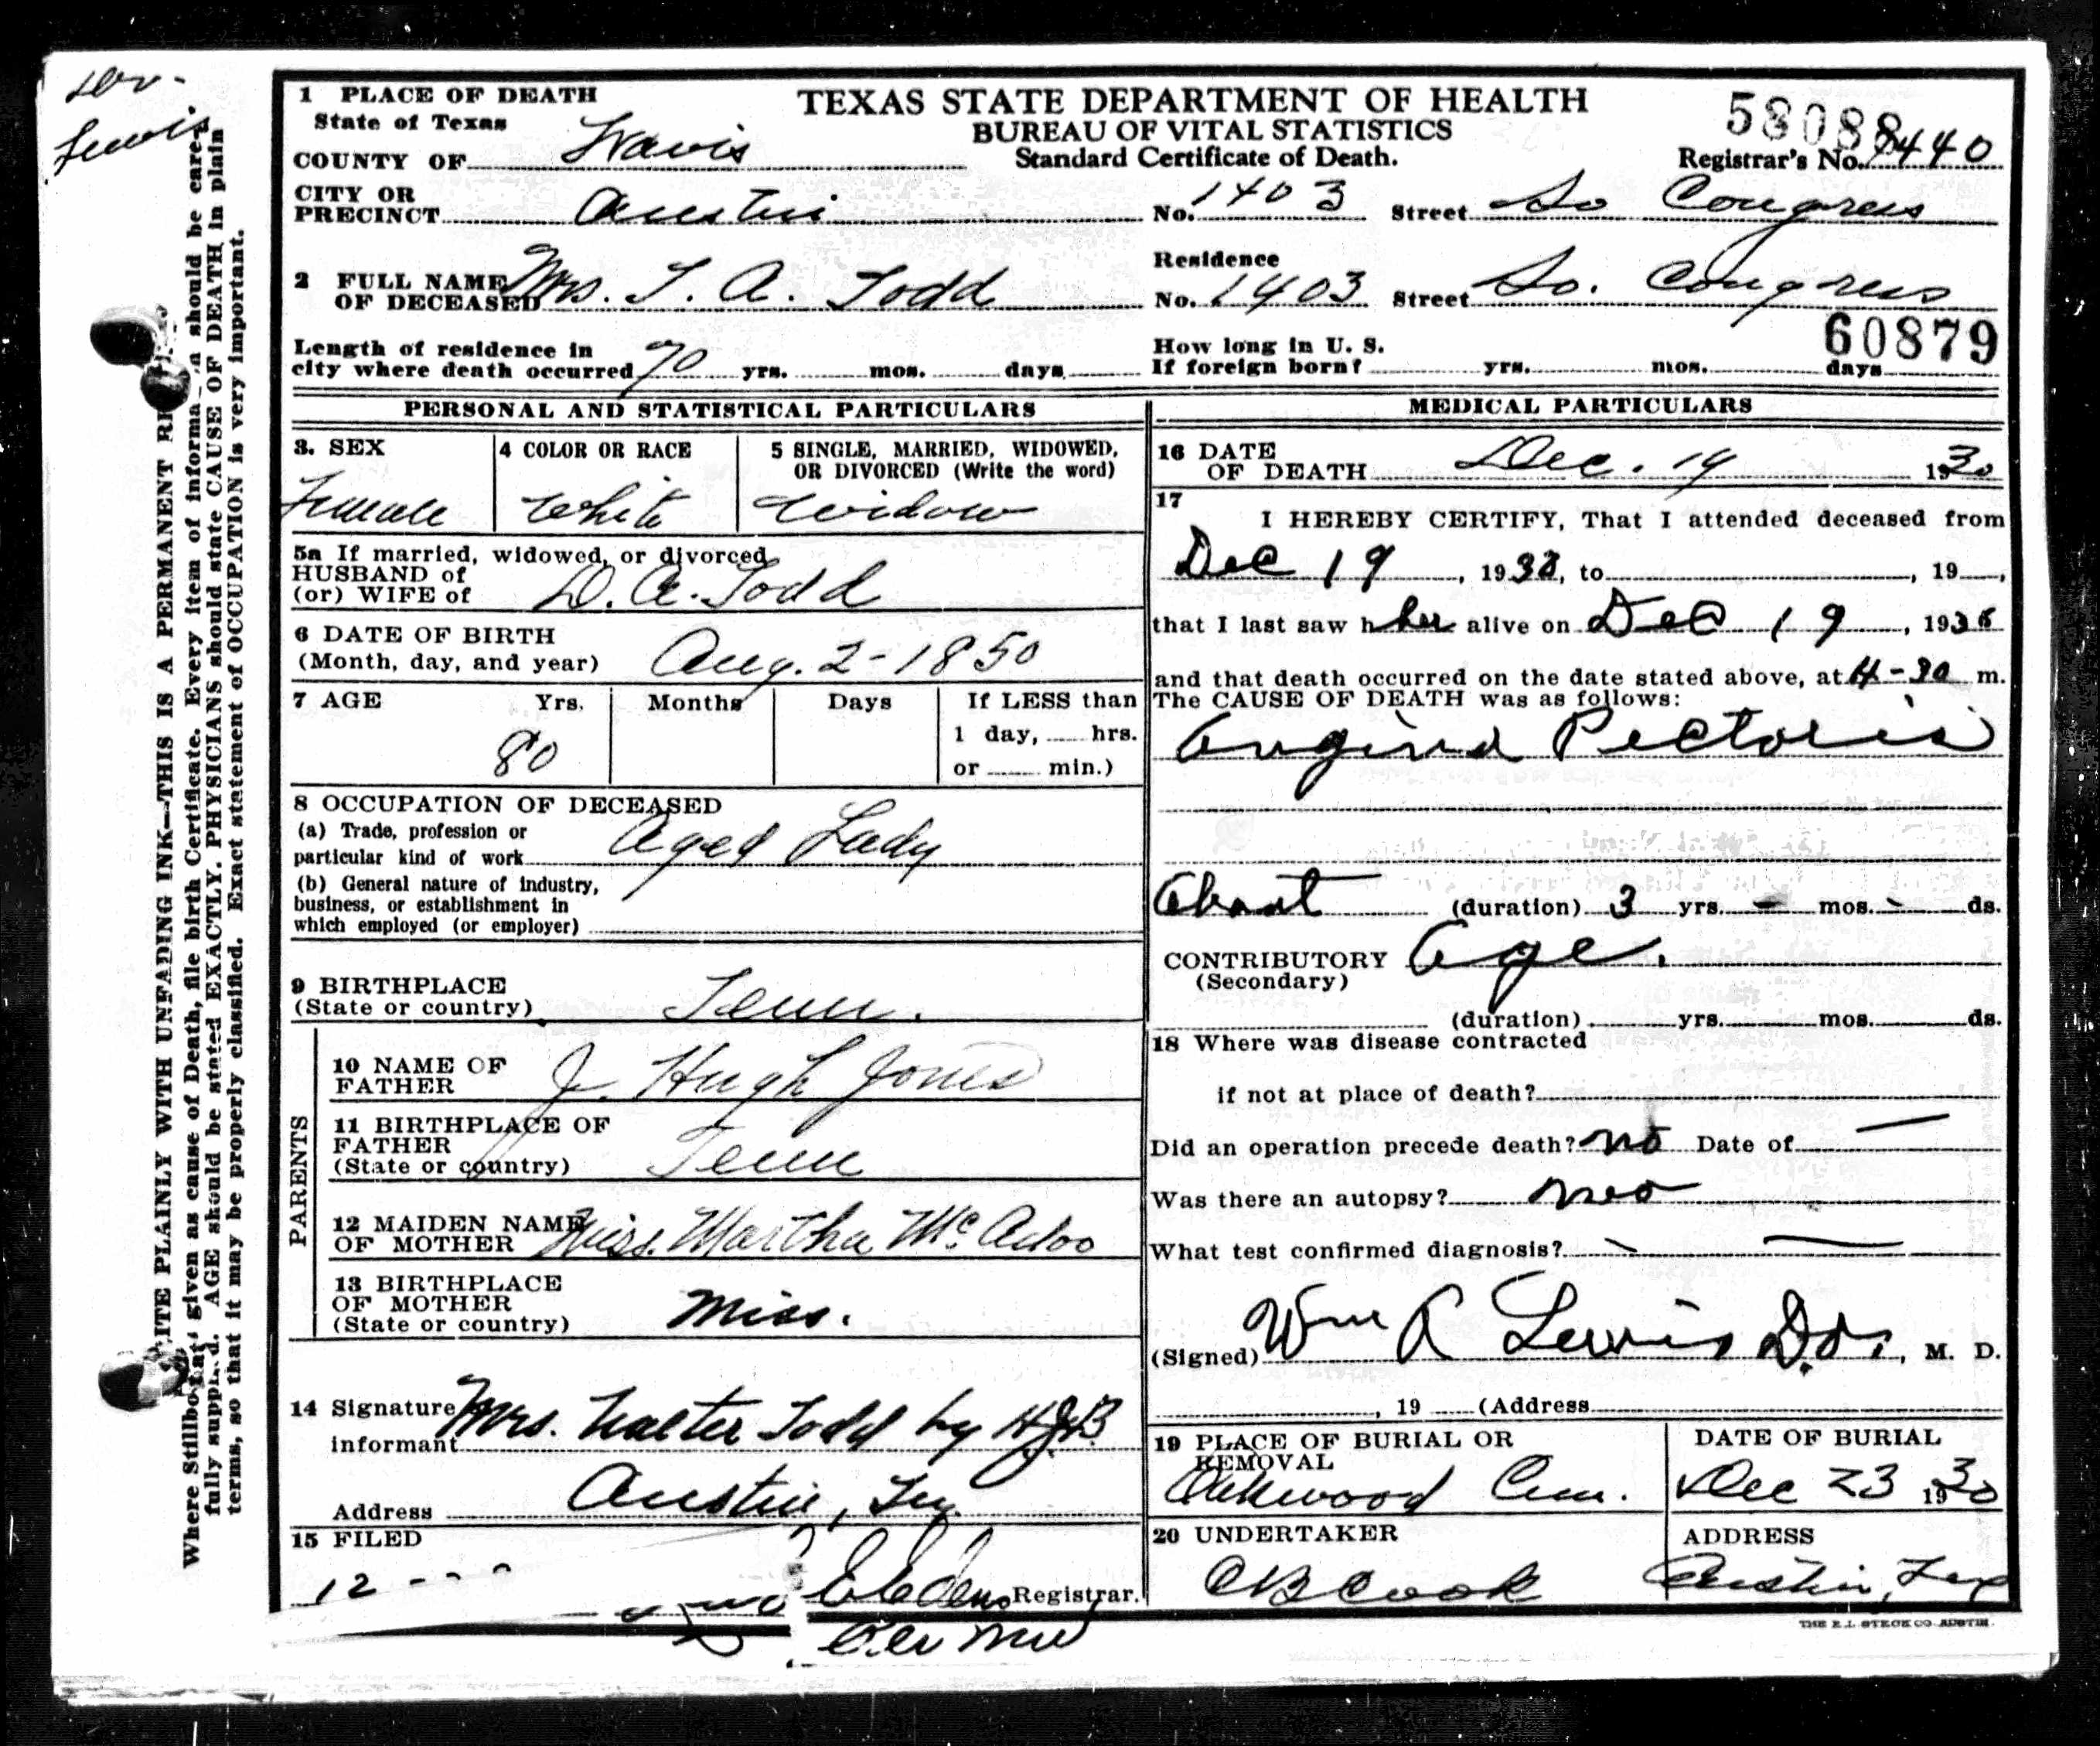 Lewis
WRITE PLAINLY WITH UNFADING INK—THIS IS A PERMANENT
Where Stillborn given as cause of Death, file birth Certificate. Every item of information should be care-
fully supplied. AGE should be stated EXACTLY. PHYSICIANS should state CAUSE OF DEATH in plain
terms, so that it may be properly classified. Exact statement of OCCUPATION is very important.
1 PLACE OF DEATH
State of Texas
COUNTY OF Travis
CITY OR
PRECINCT Austin
TEXAS STATE DEPARTMENT OF HEALTH
BUREAU OF VITAL STATISTICS
Standard Certificate of Death.
58088
Registrar's No. 440
No. 1403 Street So Congress
2 FULL NAME
OF DECEASED Mrs. T. A. Todd
Residence
No. 1403 Street So. Congress
60879
Length of residence in
city where death occurred 70 yrs. mos. days
How long in U. S.
If foreign born? yrs. mos. days
PERSONAL AND STATISTICAL PARTICULARS
3. SEX
Female
4 COLOR OR RACE
White
5 SINGLE, MARRIED, WIDOWED,
OR DIVORCED (Write the word)
Widow
5a If married, widowed, or divorced
HUSBAND of
(or) WIFE of D. A. Todd
6 DATE OF BIRTH
(Month, day, and year) Aug. 2-1850
7 AGE Yrs. Months Days If LESS than
1 day, hrs.
or min.)
80
8 OCCUPATION OF DECEASED
(a) Trade, profession or
particular kind of work Aged Lady
(b) General nature of industry,
business, or establishment in
which employed (or employer)
9 BIRTHPLACE
(State or country) Tenn.
PARENTS
10 NAME OF
FATHER J. Hugh Jones
11 BIRTHPLACE OF
FATHER
(State or country) Tenn
12 MAIDEN NAME
OF MOTHER Miss. Martha McAdoo
13 BIRTHPLACE
OF MOTHER
(State or country) Miss.
14 Signature
informant Mrs. Walter Todd by
Address Austin, Tex
15 FILED
12
Registrar.
MEDICAL PARTICULARS
16 DATE
OF DEATH Dec. 19 1930
17
I HEREBY CERTIFY, That I attended deceased from
Dec 19, 1930, to , 19 ,
that I last saw h her alive on Dec 19, 1930
and that death occurred on the date stated above, at 4-30 m.
The CAUSE OF DEATH was as follows:
Angina Pectoris
About (duration) 3 yrs. - mos. - ds.
CONTRIBUTORY Age.
(Secondary)
(duration) yrs. mos. ds.
18 Where was disease contracted
if not at place of death?
Did an operation precede death? no Date of —
Was there an autopsy? no
What test confirmed diagnosis? — —
(Signed) Wm R Lewis D.O., M. D.
, 19 (Address
19 PLACE OF BURIAL OR
REMOVAL
Oakwood Cem.
DATE OF BURIAL
Dec 23 1930
20 UNDERTAKER
C B Cook
ADDRESS
Austin, Tex
THE E.L. STECK CO. AUSTIN.